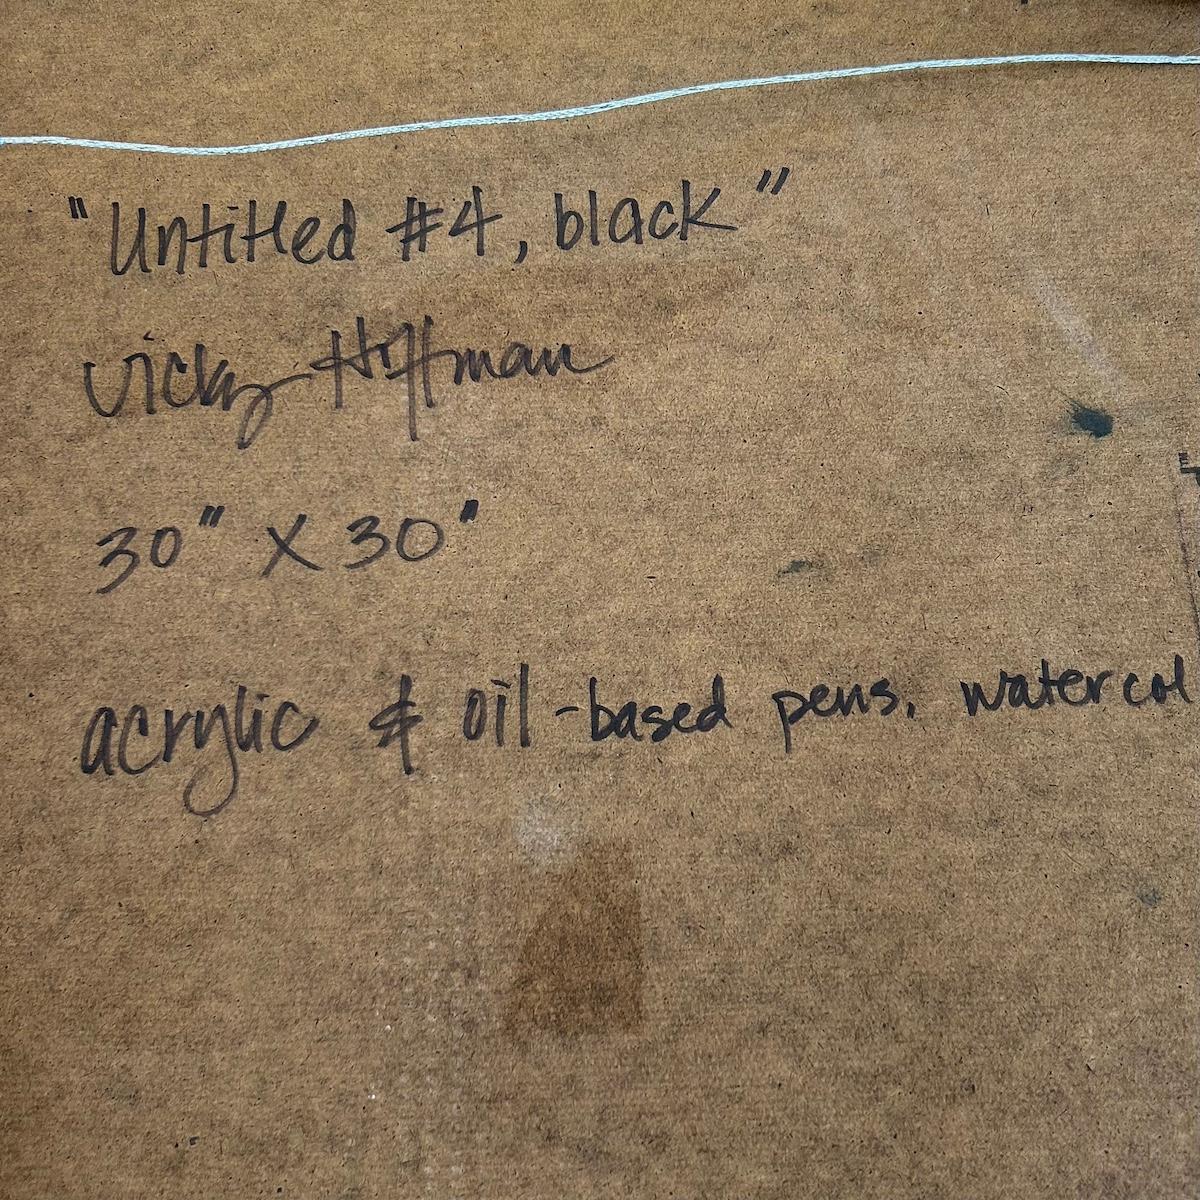 "Untitled #4, black"
Vicky Hoffman
30" X 30"
acrylic & oil-based pens, watercol